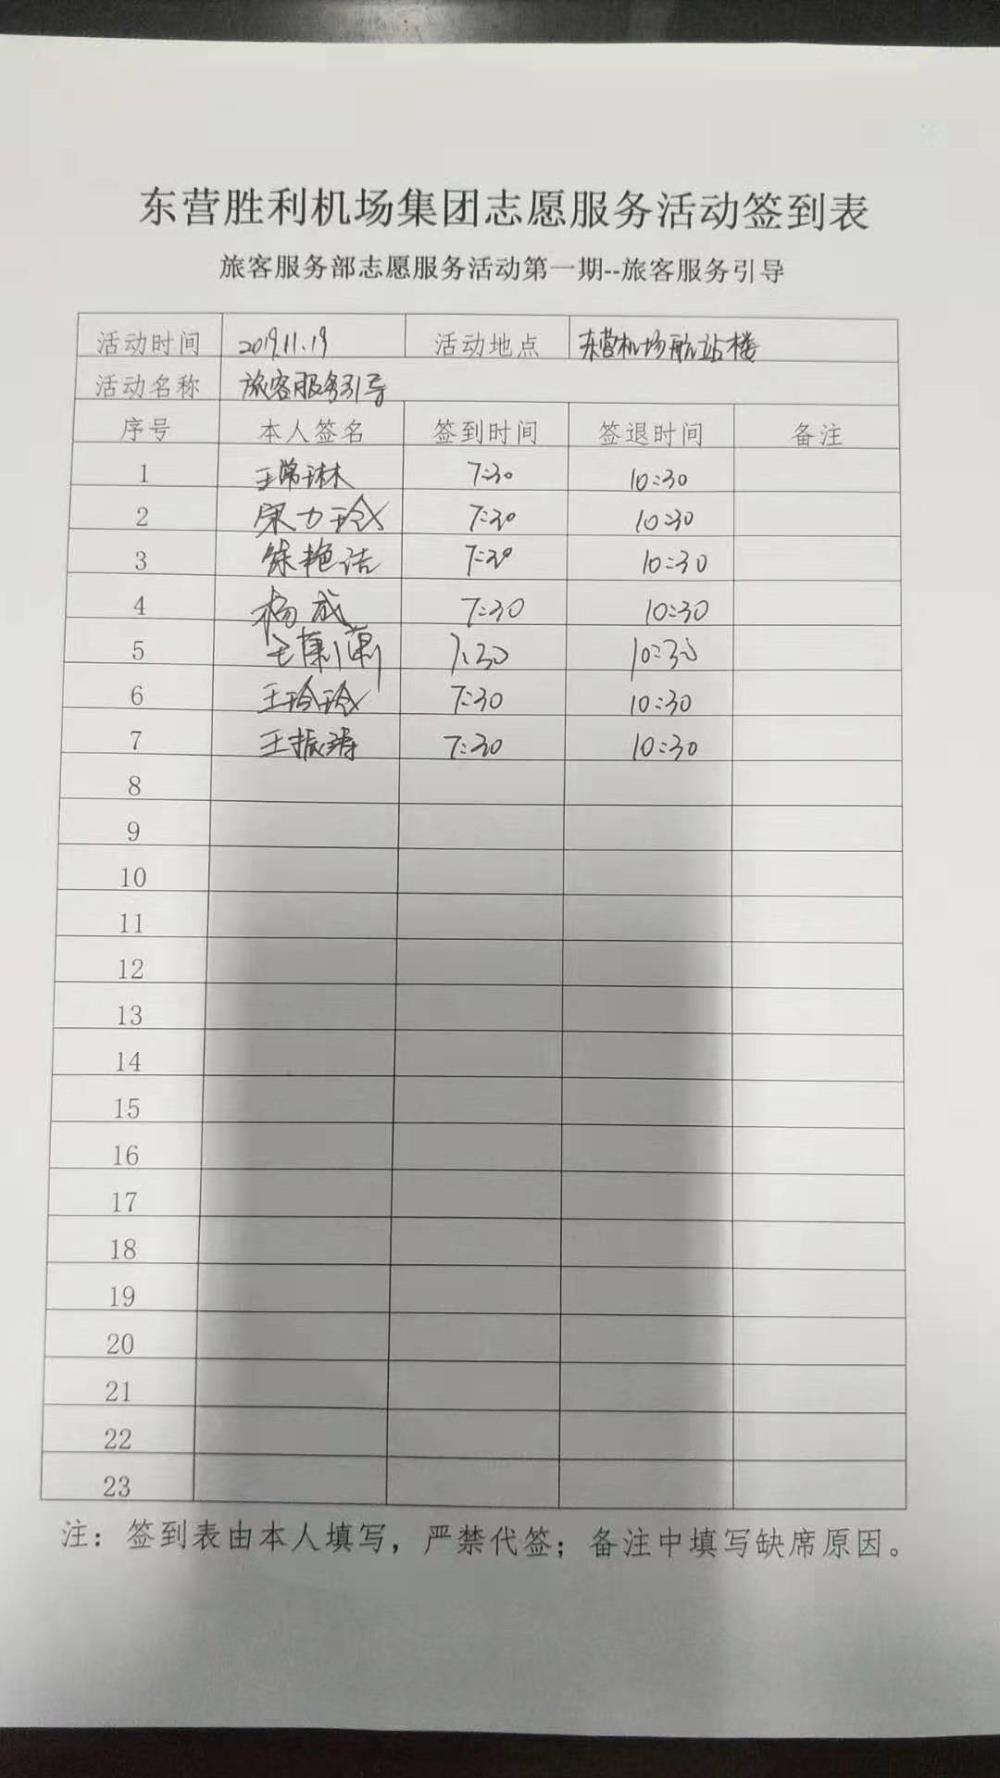 东营胜利机场集团志愿服务活动签到表
旅客服务部志愿服务活动第一期--旅客服务引导
活动时间 2019.11.19 活动地点 东营机场航站楼
活动名称 旅客服务引导
序号 本人签名 签到时间 签退时间 备注
1 王常琳 7:30 10:30
2 宋力玲 7:30 10:30
3 徐艳洁 7:30 10:30
4 杨成 7:30 10:30
5 王 7:30 10:30
6 王玲玲 7:30 10:30
7 王振涛 7:30 10:30
8
9
10
11
12
13
14
15
16
17
18
19
20
21
22
23
注：签到表由本人填写，严禁代签；备注中填写缺席原因。